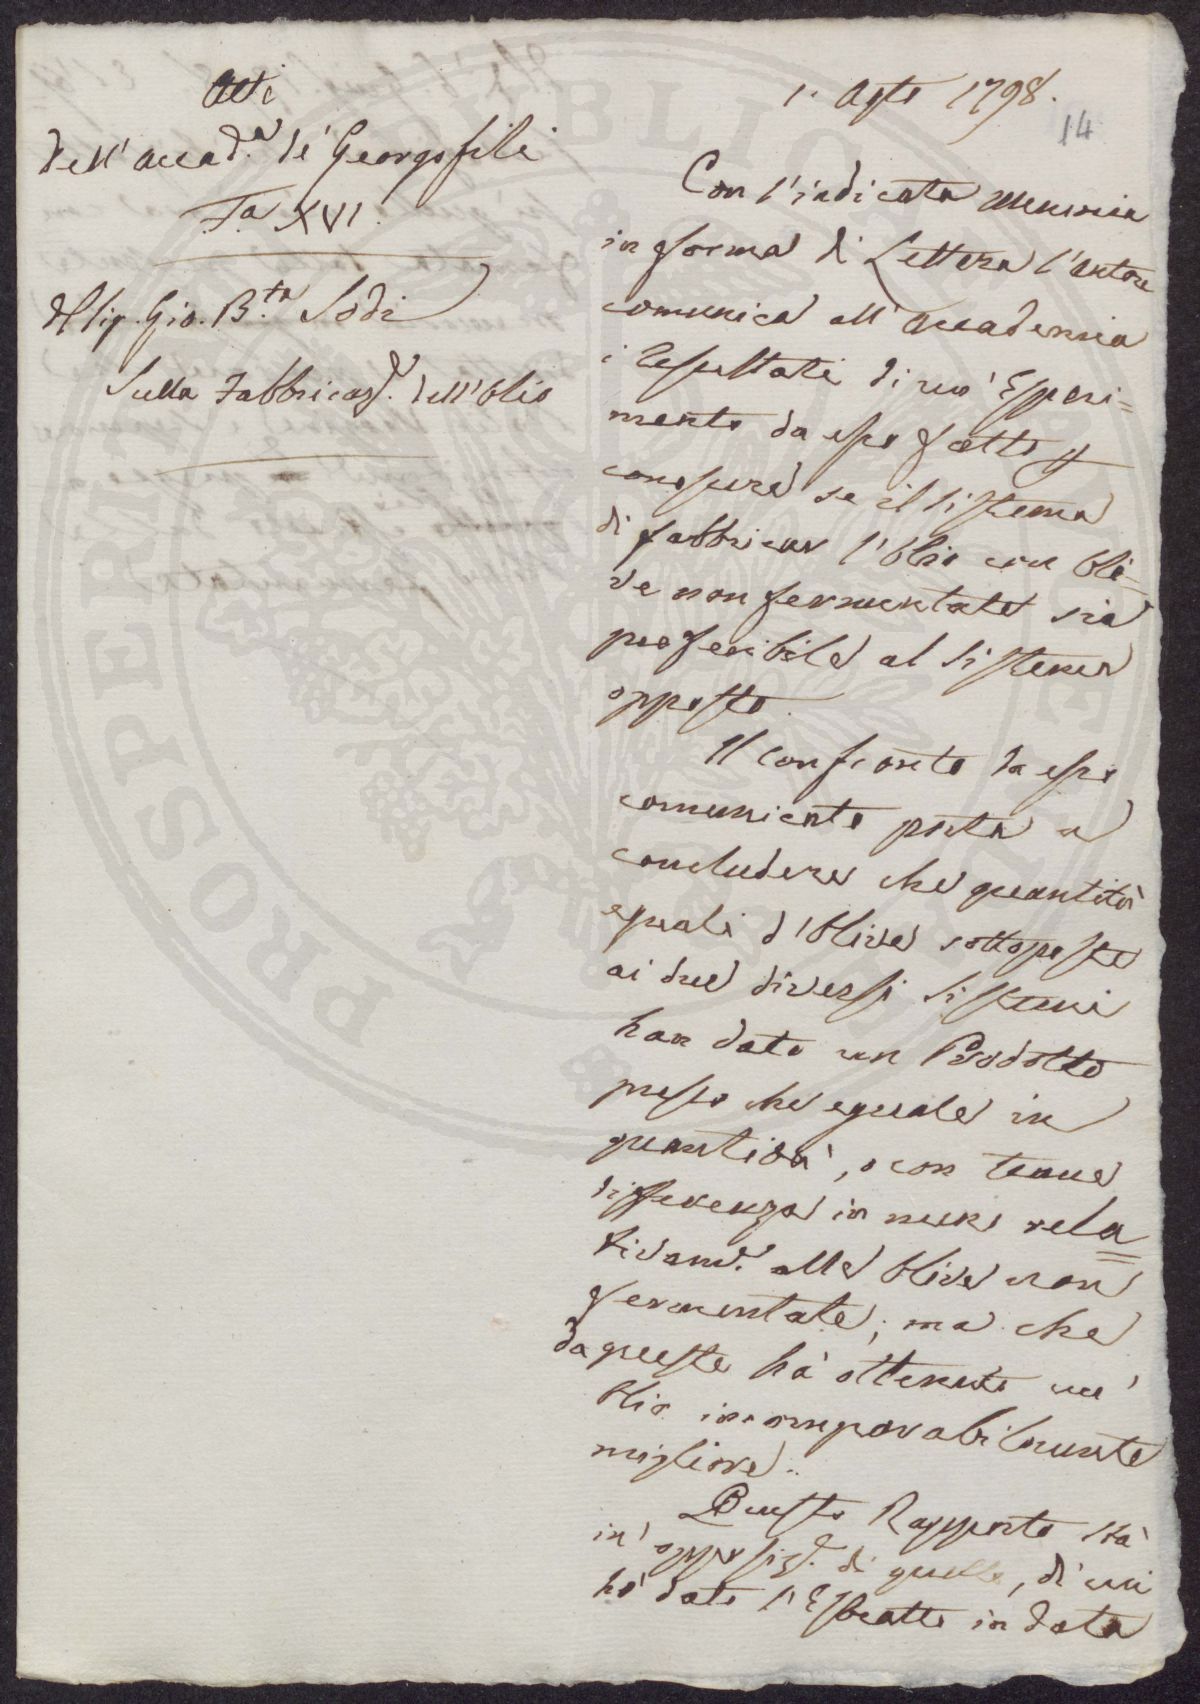 Atti
dell'Accad.a de' Georgofili
F.a XVI.
Del Sig. Gio. B.ta Sodi
Sulla Fabbricaz.e dell'Olio
1. Agto 1798.
14
Con l'indicata Memoria
in forma di Lettera l'Autore
comunica all'Accademia
i Resultati di un' Esperi=
mento da esso fatto p
conoscere se il sistema
di fabbricar l'Olio con Oli-
ve non fermentate sia
preferibile al sistema
opposto.
Il confronto da esso
comunicato porta a
concludere che quantità
eguali d'Olive sottoposte
ai due diversi sistemi
han dato un Prodotto
presso che eguale in
quantità, o con tenue
differenza in meno rela=
tivam.e alle Olive non
fermentate; ma che
da queste hà ottenuto un'
Olio incomparabilmente
migliore.
Questo Rapporto stà
in' opposiz.e di quello, di cui
hò dato l'Estratto in data
PROSPERITÀ